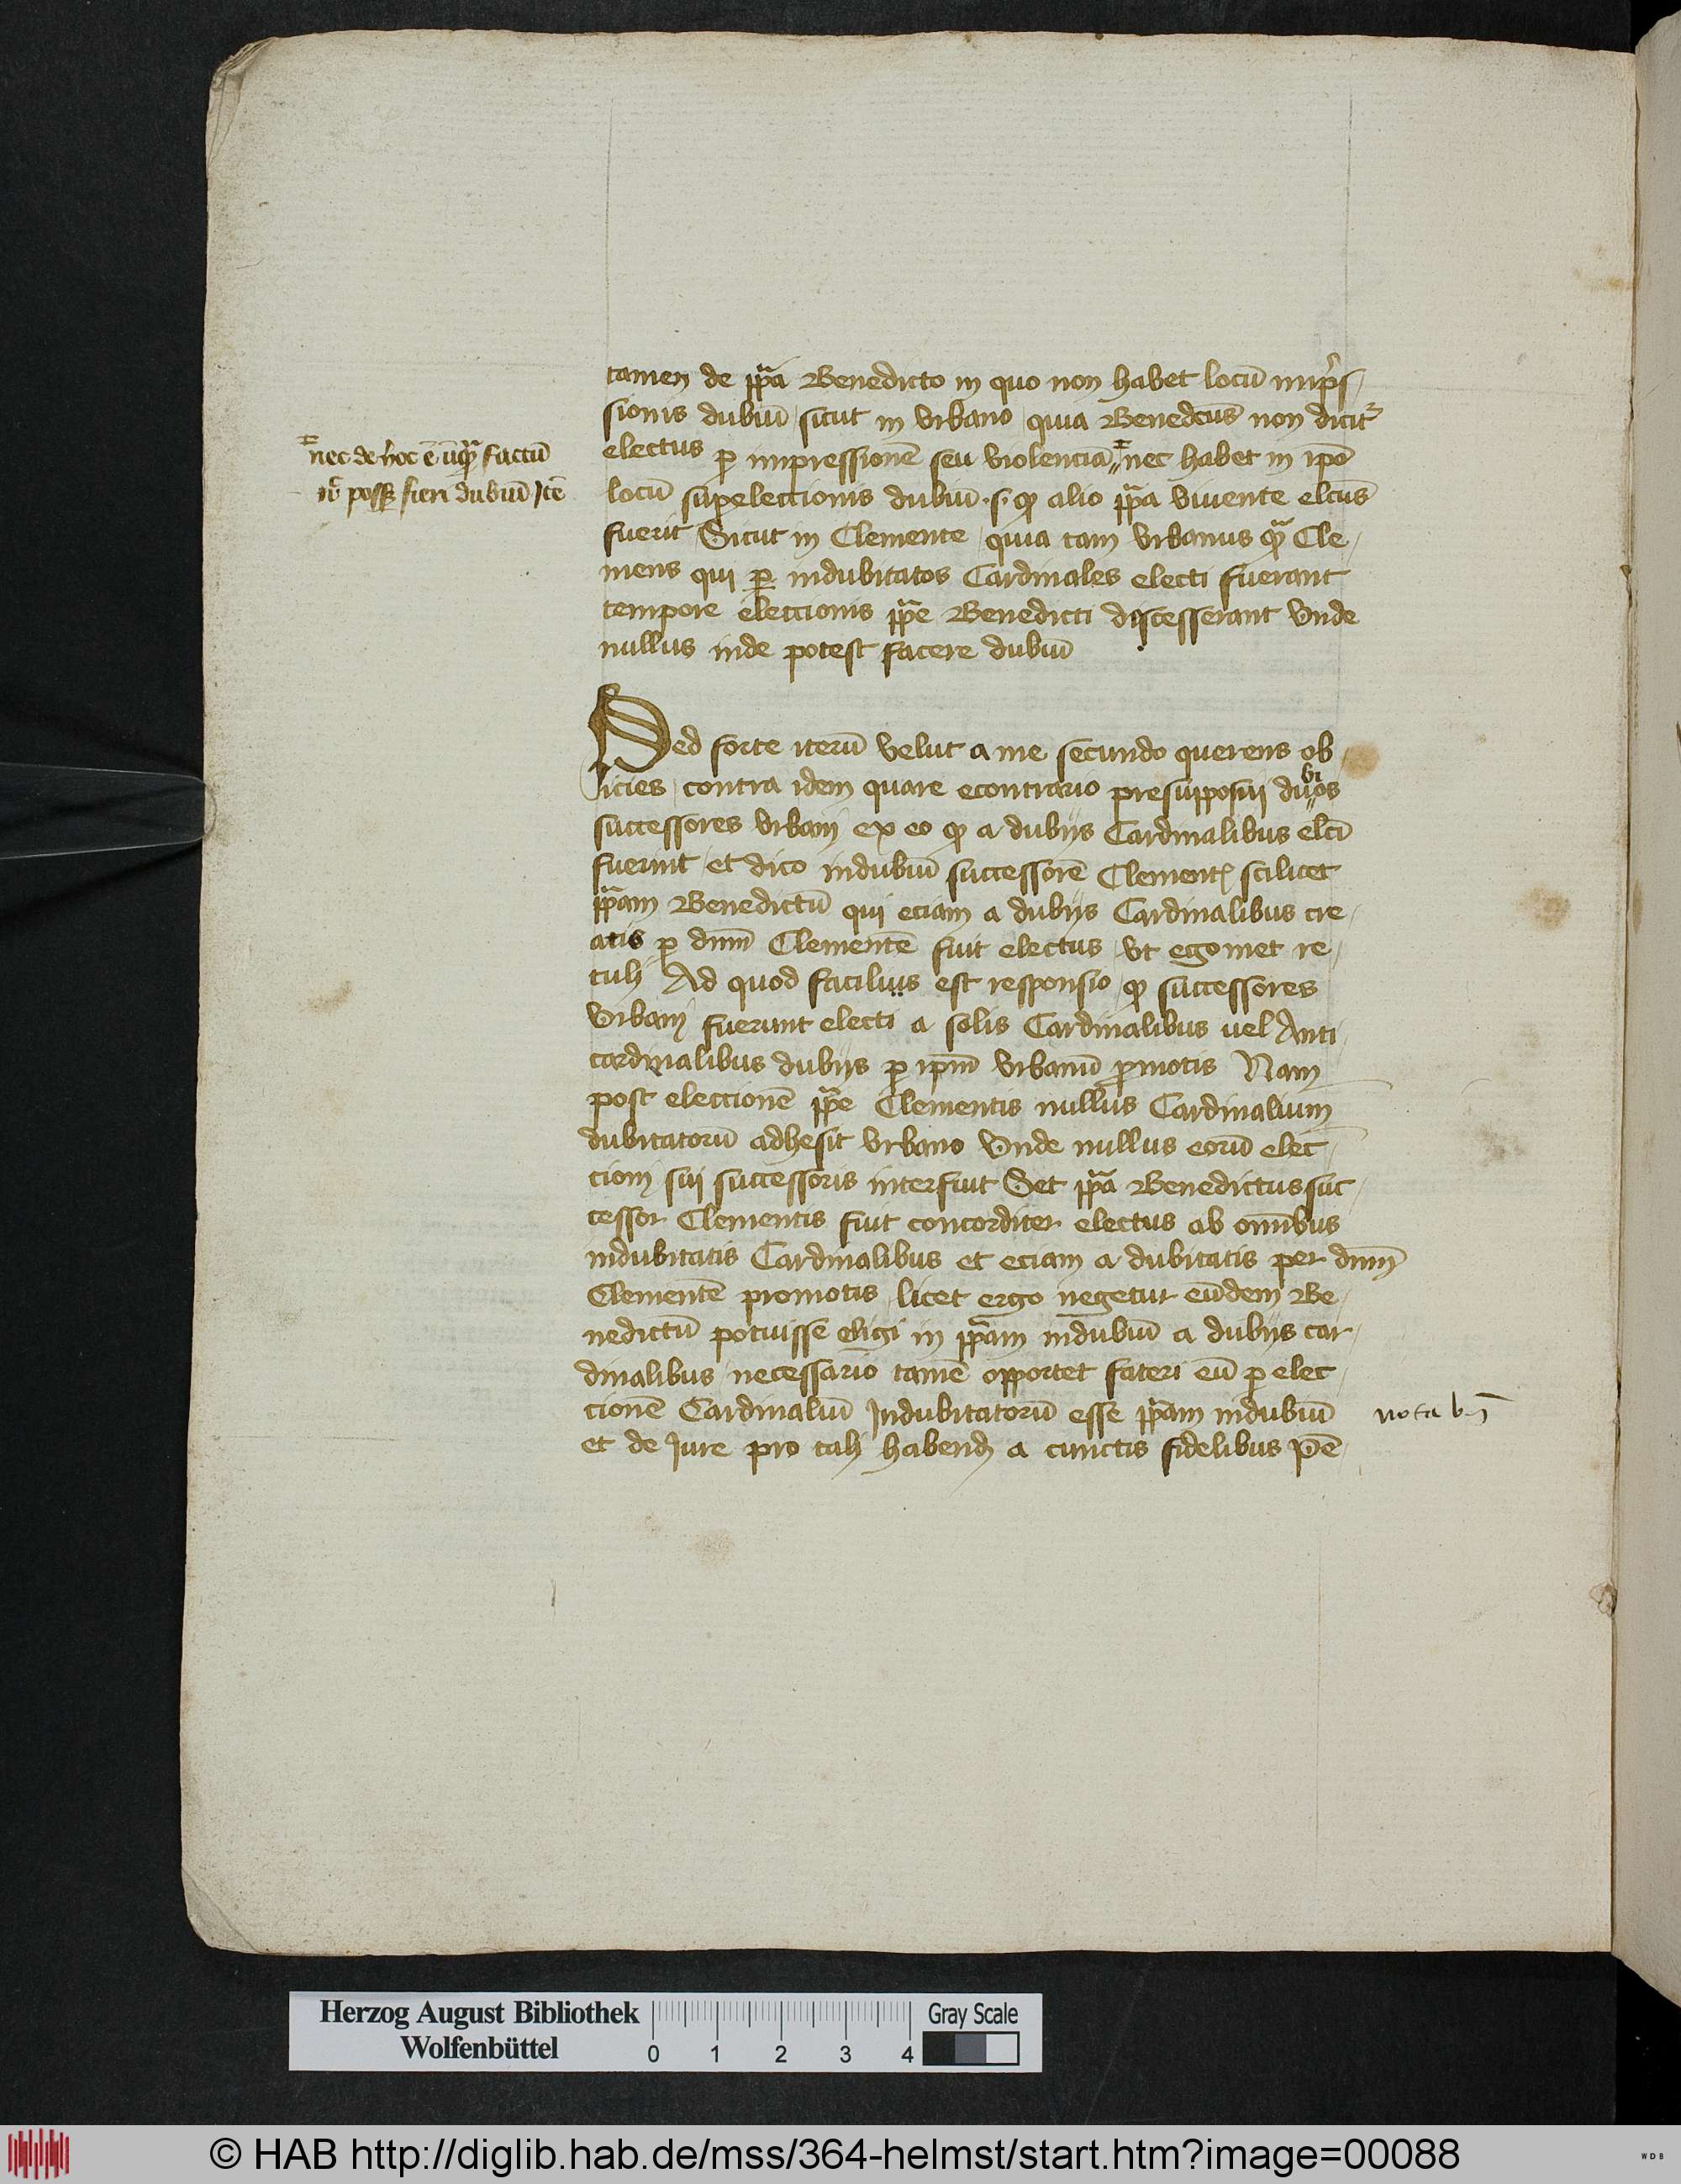 tamen de ppa Benedicto in quo non habet locū imp̄s
sionis dubiū sicut in Vrbano quia Benedcūs non dicit᷑
electus ꝑ impressionē seu violenciā nec habet in ip̄o
locū suꝑeleccionis dubiū .s. ꝙ alio ppa viuente elcūs
fuerit Sicut in Clemente quia tam Vrbanus ꝙ Cle
mens qui ꝑ indubitatos Cardinales electi fuerant
tempore eleccionis ppe Benedicti discesserant Vnde
nullus inde potest facere dubiū
nec de hoc ē ūqꝫ factū
posset fieri dubiū Itē
Sed forte iterū velut a me secundo querens ob
iicies contra idem quare econtrario presupposui
successores Vrbani ex eo ꝙ a dubijs Cardinalibus elcī
fuerint et dico indubiū successorē Clement scilicet
ppam Benedictū qui eciam a dubijs Cardinalibus cre
atis ꝑ dnm̄ Clementē fuit electus vt egomet re
tuli Ad quod facilius est responsio ꝙ successores
Vrbani fuerunt electi a solis Cardinalibus uel Anti
cardinalibus dubijs ꝑ ipm̄ Vrbanū ꝓmotis Nam
post eleccionē ppe Clementis nullus Cardinalium
dubitatorū adhesit Vrbano Vnde nullus eorū elec
cioni sui successoris interfuit Set ppa Benedictus suc
cessor Clementis fuit concorditer electus ab om̄ibus
indubitatis Cardinalibus et eciam a dubitatis per dnm̄
Clementē promotis licet ergo negetur eūdem Be
nedictū potuisse eligi in ppam indubiū a dubijs car
dinalibus necessario tamē opportet fateri eū ꝑ elec
cionē Cardinaliū Indubitatorū esse ppam indubiū
nota
et de Iure pro tali habend a cunctis fidelibus
Herzog August Bibliothek
Wolfenbüttel
0 1 2 3 4
Gray Scale
© HAB http://diglib.hab.de/mss/364-helmst/start.htm?image=00088
W D B